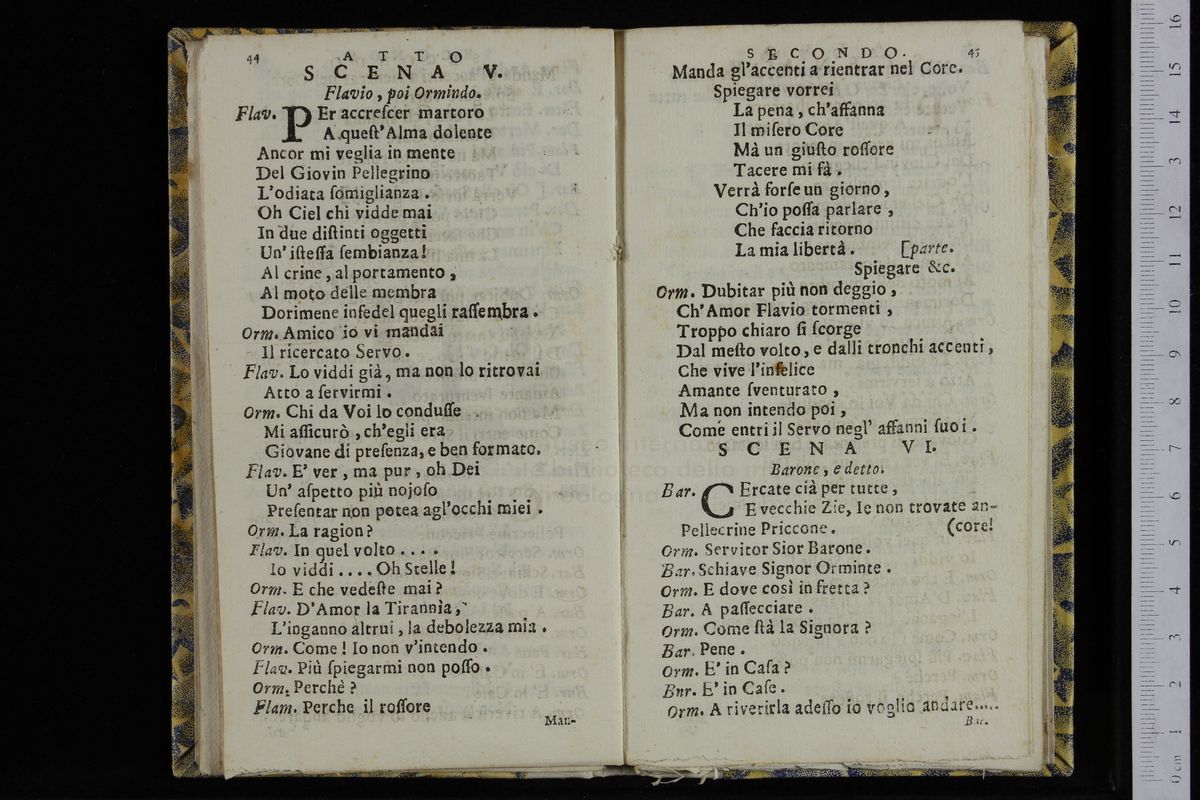 44
A T T O
S C E N A V.
Flavio, poi Ormindo.
Flav. PEr accreſcer martoro
A queſt'Alma dolente
Ancor mi veglia in mente
Del Giovin Pellegrino
L'odiata ſomiglianza.
Oh Ciel chi vidde mai
In due diſtinti oggetti
Un' iſteſſa ſembianza!
Al crine, al portamento,
Al moto delle membra
Dorimene infedel quegli raſſembra.
Orm. Amico io vi mandai
Il ricercato Servo.
Flav. Lo viddi già, ma non lo ritrovai
Atto a ſervirmi.
Orm. Chi da Voi lo conduſſe
Mi aſſicurò, ch'egli era
Giovane di preſenza, e ben formato.
Flav. E' ver, ma pur, oh Dei
Un' aſpetto più nojoſo
Preſentar non potea agl'occhi miei.
Orm. La ragion?
Flav. In quel volto....
Io viddi....Oh Stelle!
Orm. E che vedeſte mai?
Flav. D'Amor la Tirannia,
L'inganno altrui, la debolezza mia.
Orm. Come! Io non v'intendo.
Flav. Più ſpiegarmi non poſſo.
Orm. Perchè?
Flam. Perche il roſſore
Man-
SECONDO.
45
Manda gl'accenti a rientrar nel Core.
Spiegare vorrei
La pena, ch'affanna
Il miſero Core
Mà un giuſto roſſore
Tacere mi fà.
Verrà forſe un giorno,
Ch'io poſſa parlare,
Che faccia ritorno
La mia libertà. [parte.
Spiegare &c.
Orm. Dubitar più non deggio,
Ch'Amor Flavio tormenti,
Troppo chiaro ſi ſcorge
Dal meſto volto, e dalli tronchi accenti,
Che vive l'infelice
Amante ſventurato,
Ma non intendo poi,
Come entri il Servo negl' affanni ſuoi.
S C E N A VI.
Barone, e detto.
Bar. CErcate cià per tutte,
E vecchie Zie, Ie non trovate an-
Pellecrine Priccone. (core!
Orm. Servitor Sior Barone.
Bar. Schiave Signor Orminte.
Orm. E dove così in fretta?
Bar. A paſſecciare.
Orm. Come ſtà la Signora?
Bar. Pene.
Orm. E' in Caſa?
Bnr. E' in Caſe.
Orm. A riverirla adeſſo io voglio andare.....
Bar.